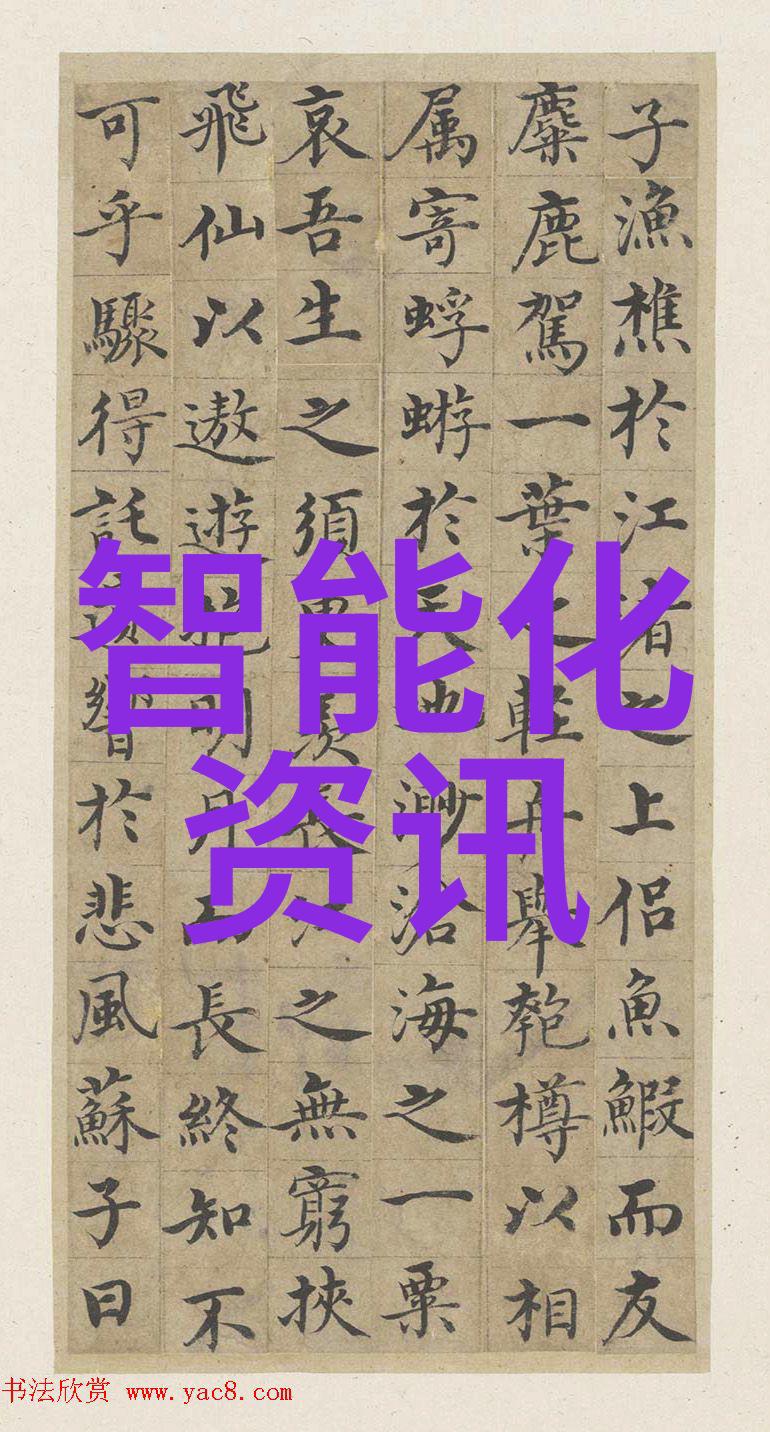 子漁樵於江渚之上侶魚鰕而友
麋鹿駕一葉之軽舟舉匏樽以相
属寄蜉蝣於天地渺滄海之一粟
哀吾生之須臾羨長江之無窮挾
飛仙以遨遊抱明月而長終知不
可乎驟得託遺響於悲風蘇子曰
智能化
资讯
书法欣赏 www.yac8.com